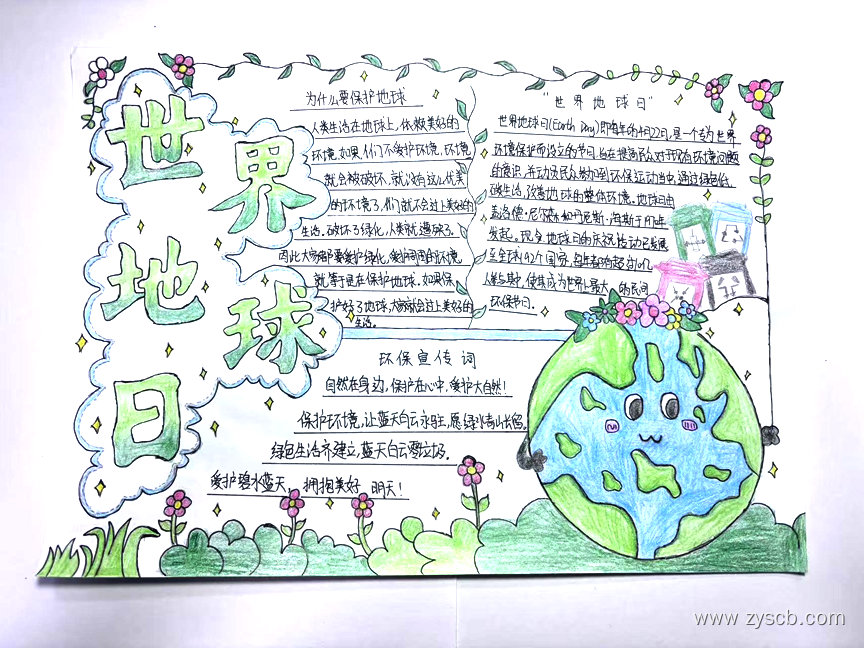 世界地球日
为什么要保护地球
人类生活在地球上,依赖美好的
环境,如果人们不爱护环境,环境
就会被破坏,就没有这么优美
的环境了,人们就不会过上美好的
生活。破坏了绿化,人类就遭殃了。
因此大家都要爱护绿化,爱护周围的环境,
就等于是在保护地球。如果保
护好了地球,大家就会过上美好的
生活。
"世界地球日"
世界地球日(Earth Day)即每年的4月22日,是一个专为世界
环境保护而设立的节日,旨在提高民众对于现有环境问题
的意识,并动员民众参加到环保运动当中,通过绿色低
碳生活,改善地球的整体环境。地球日由
盖洛德·尼尔森和丹尼斯·海斯于1970年
发起。现今地球日的庆祝活动已发展
至全球192个国家,每年有超过10亿
人参与其中,使其成为世界上最大的民间
环保节日。
环保宣传词
自然在身边,保护在心中,爱护大自然!
保护环境,让蓝天白云永驻,愿绿水青山长留。
绿色生活齐建立,蓝天白云零垃圾。
爱护碧水蓝天,拥抱美好明天!
www.zyscb.com